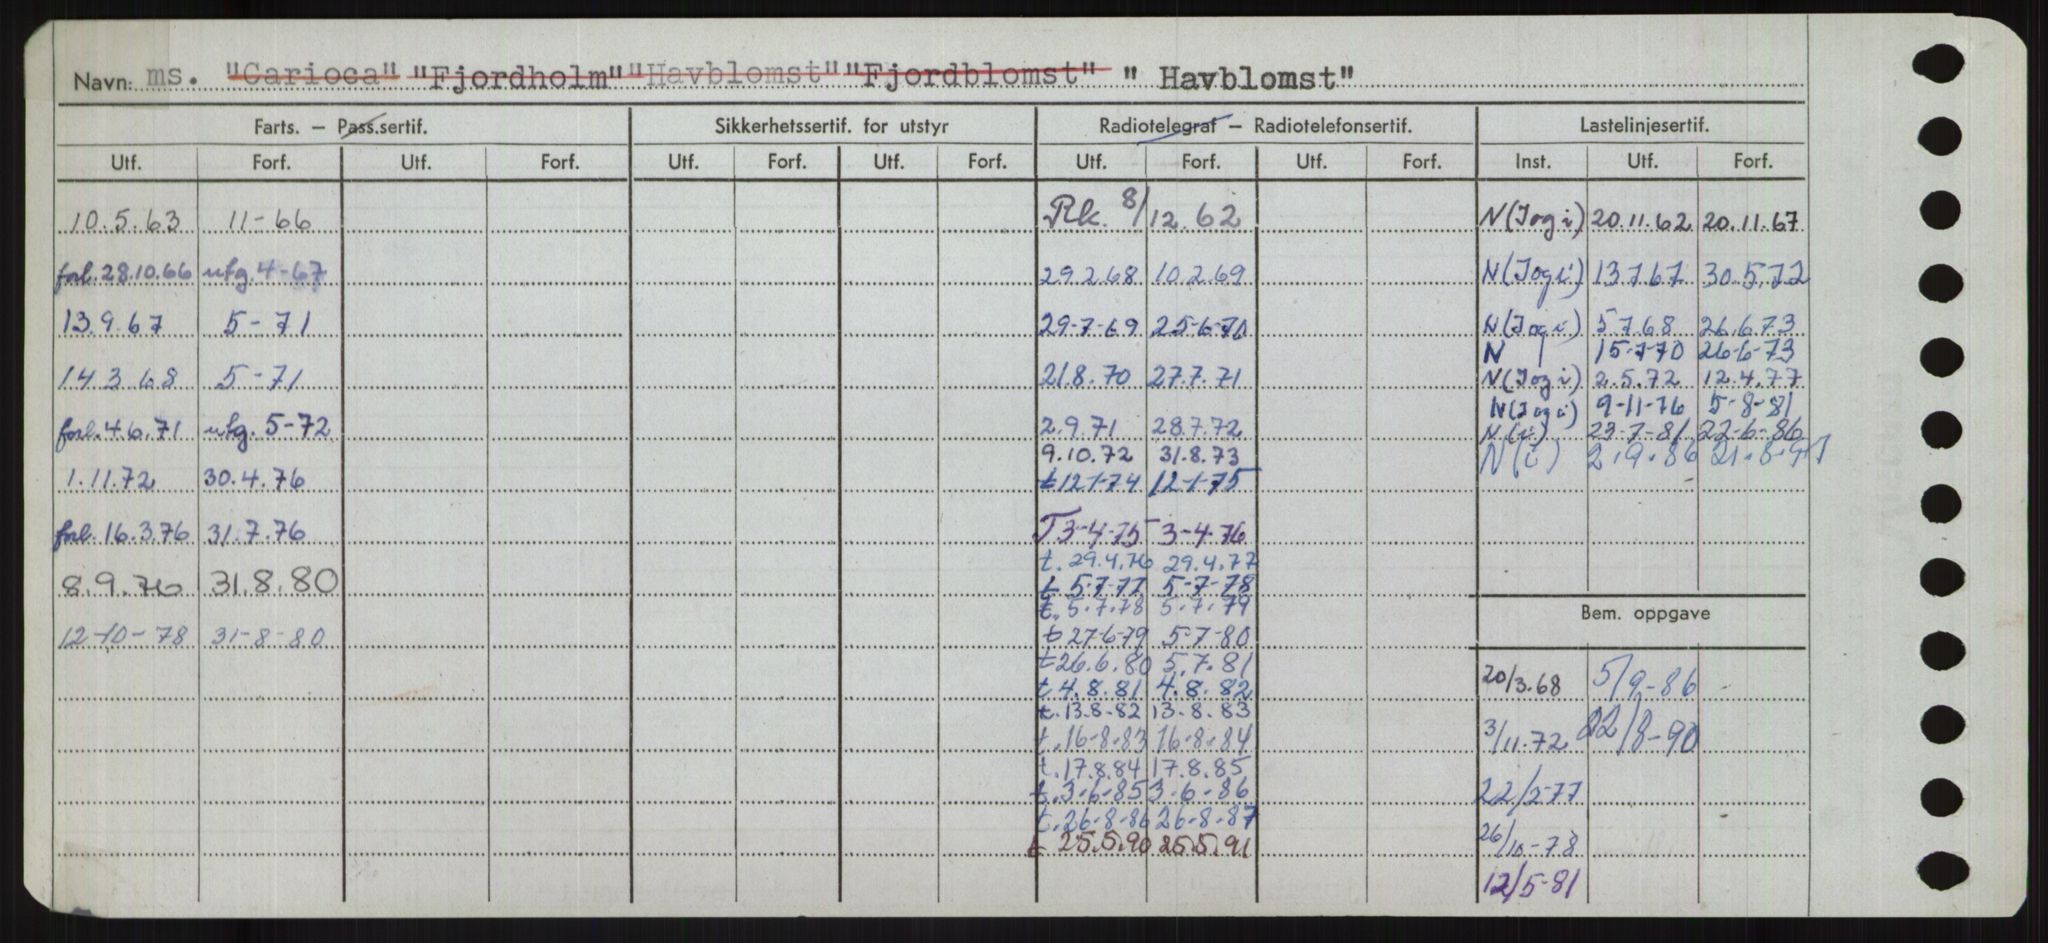 Navn: ms. "Carioca" "Fjordholm" "Havblomst" "Fjordblomst" " Havblomst"
Farts. – Pass.sertif. Sikkerhetssertif. for utstyr Radiotelegraf – Radiotelefonsertif. Lastelinjesertif.
Utf. Forf. Utf. Forf. Utf. Forf. Utf. Forf. Utf. Forf. Utf. Forf. Inst. Utf. Forf.
10.5.63 11-66 Rk. 8/12.62 N(Jog i) 20.11.62 20.11.67
forl. 28.10.66 utg. 4-67 29.2.68 10.2.69 N(Jog i) 13.7.67 30.5.72
13.9.67 5-71 29-7-69 25-6-70 N(Jog i) 5.7.68 26.6.73
N 15-7-70 26-6-73
14.3.68 5-71 21.8.70 27.7.71 N(Jog i) 2.5.72 12.4.77
N(Jog i) 9-11-76 5-8-81
forl. 4.6.71 utg. 5-72 2.9.71 28.7.72 N(i) 23-7-81 22-6-86
9.10.72 31.8.73 N(i) 2.9.86
1.11.72 30.4.76 t 12-1-74 12-1-75
forl. 16.3.76 31.7.76 T 3-4-75 3-4-76
t. 29.4.76 29.4.77
8.9.76 31.8.80 t 5-7-77 5-7-78
t. 5.7.78 5.7.79
Bem. oppgave
12-10-78 31-8-80 t 27-6-79 5-7-80
t 26.6.80 5.7.81
20/3.68 5/9-86
t. 4.8.81 4.8.82
t. 13.8-82 13.8.83
3/11.72 22/8-90
t. 16-8-83 16-8-84
t. 17.8.84 17.8.85
t. 3-6-85 3-6-86 22/2-77
t. 26-8-86 26-8-87
t 25.5.90 25.5.91 26/10-78
12/5-81